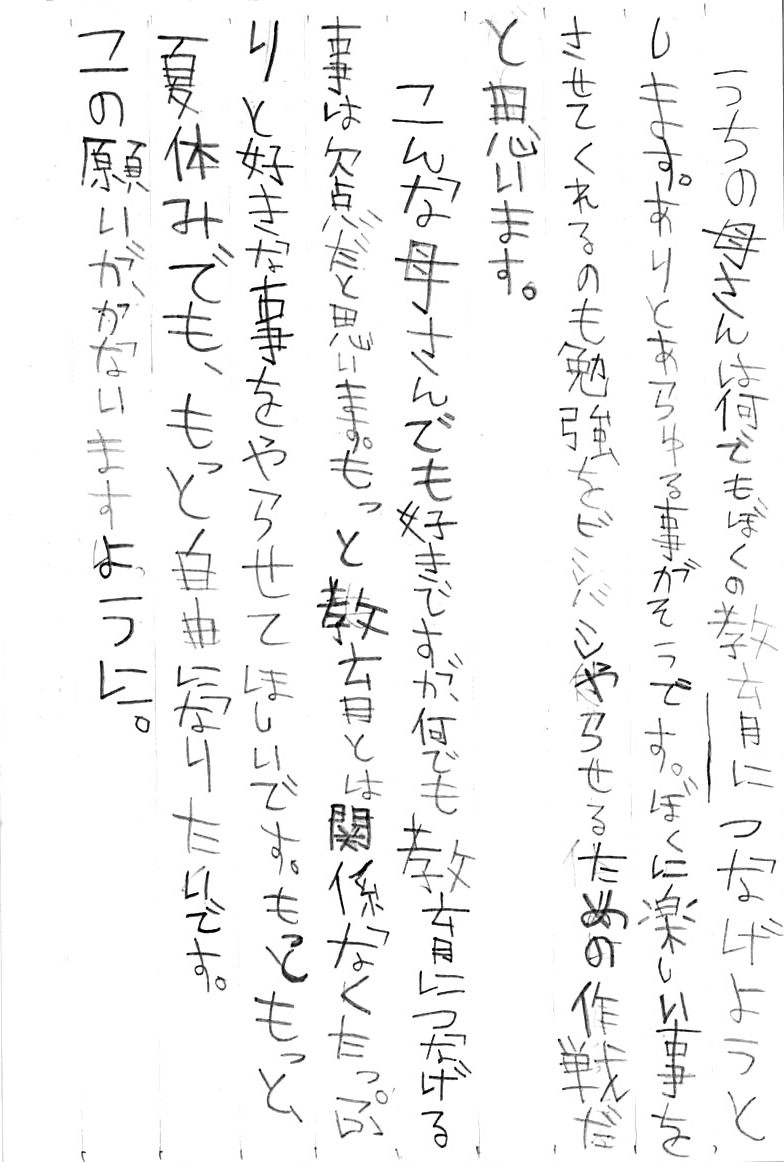 うちの母さんは何でもぼくの教育につなげようと
します。ありとあらゆる事がそうです。ぼくに楽しい事を
させてくれるのも勉強をビシバシやらせるための作戦だ
と思います。
こんな母さんでも好きですが、何でも教育につなげる
事は欠点だと思います。もっと教育とは関係なくたっぷ
りと好きな事をやらせてほしいです。もっともっと、
夏休みでも、もっと自由になりたいです。
この願いが、かないますように。